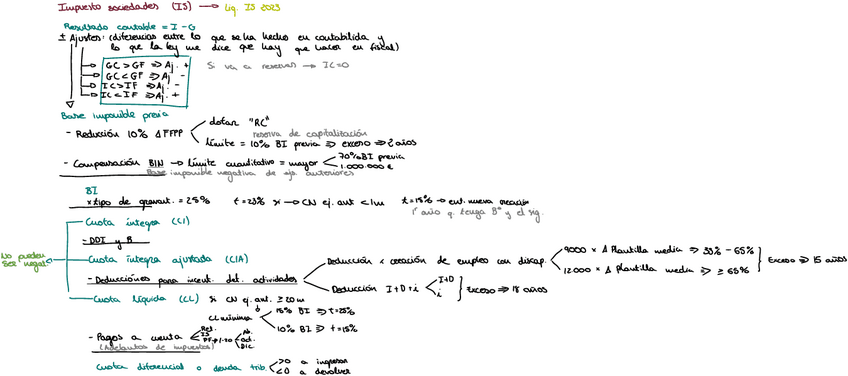 Impuesto sociedades (IS) → Liq. IS 2023
Resultado contable = I - G
± Ajustes: (diferencias entre lo que se ha hecho en contabilida y
lo que la ley me dice que hay que hacer en fiscal)
GC > GF ⇒ Aj. +
GC < GF ⇒ Aj. -
IC > IF ⇒ Aj. -
IC < IF ⇒ Aj. +
Si va a reservas → IC=0
Base imponible previa
- Reducción 10% Δ FFPP
dotar "RC"
reserva de capitalización
límite = 10% BI previa ⇒ exceso ⇒ 2 años
- Compensación BIN → límite cuantitativo = mayor
70% BI previa
1.000.000 €
Base imponible negativa de ejs. anteriores
BI
× tipo de gravam. = 25% t=23% si → CN ej. ant < 1m t=15% → ent. nueva creación
1º año q. tenga Bº y el sig.
No pueden
ser negat.
Cuota íntegra (CI)
- DDI y B
Cuota íntegra ajustada (CIA)
- Deducciones para incent. det. actividades
Deducción x creación de empleo con discap.
9000 × Δ Plantilla media ⇒ 33% - 65%
12000 × Δ Plantilla media ⇒ ≥ 65%
Exceso ⇒ 15 años
Deducción I+D+i
I+D
i
Exceso ⇒ 18 años
Cuota líquida (CL) si CN ej. ant. ≥ 20m
CL mínima
15% BI ⇒ t=25%
10% BI ⇒ t=15%
- Pagos a cuenta
Ret.
IS
PF
Ab.
Oct.
Dic.
(Adelantos de impuestos)
Cuota diferencial o deuda trib.
>0 a ingresar
<0 a devolver